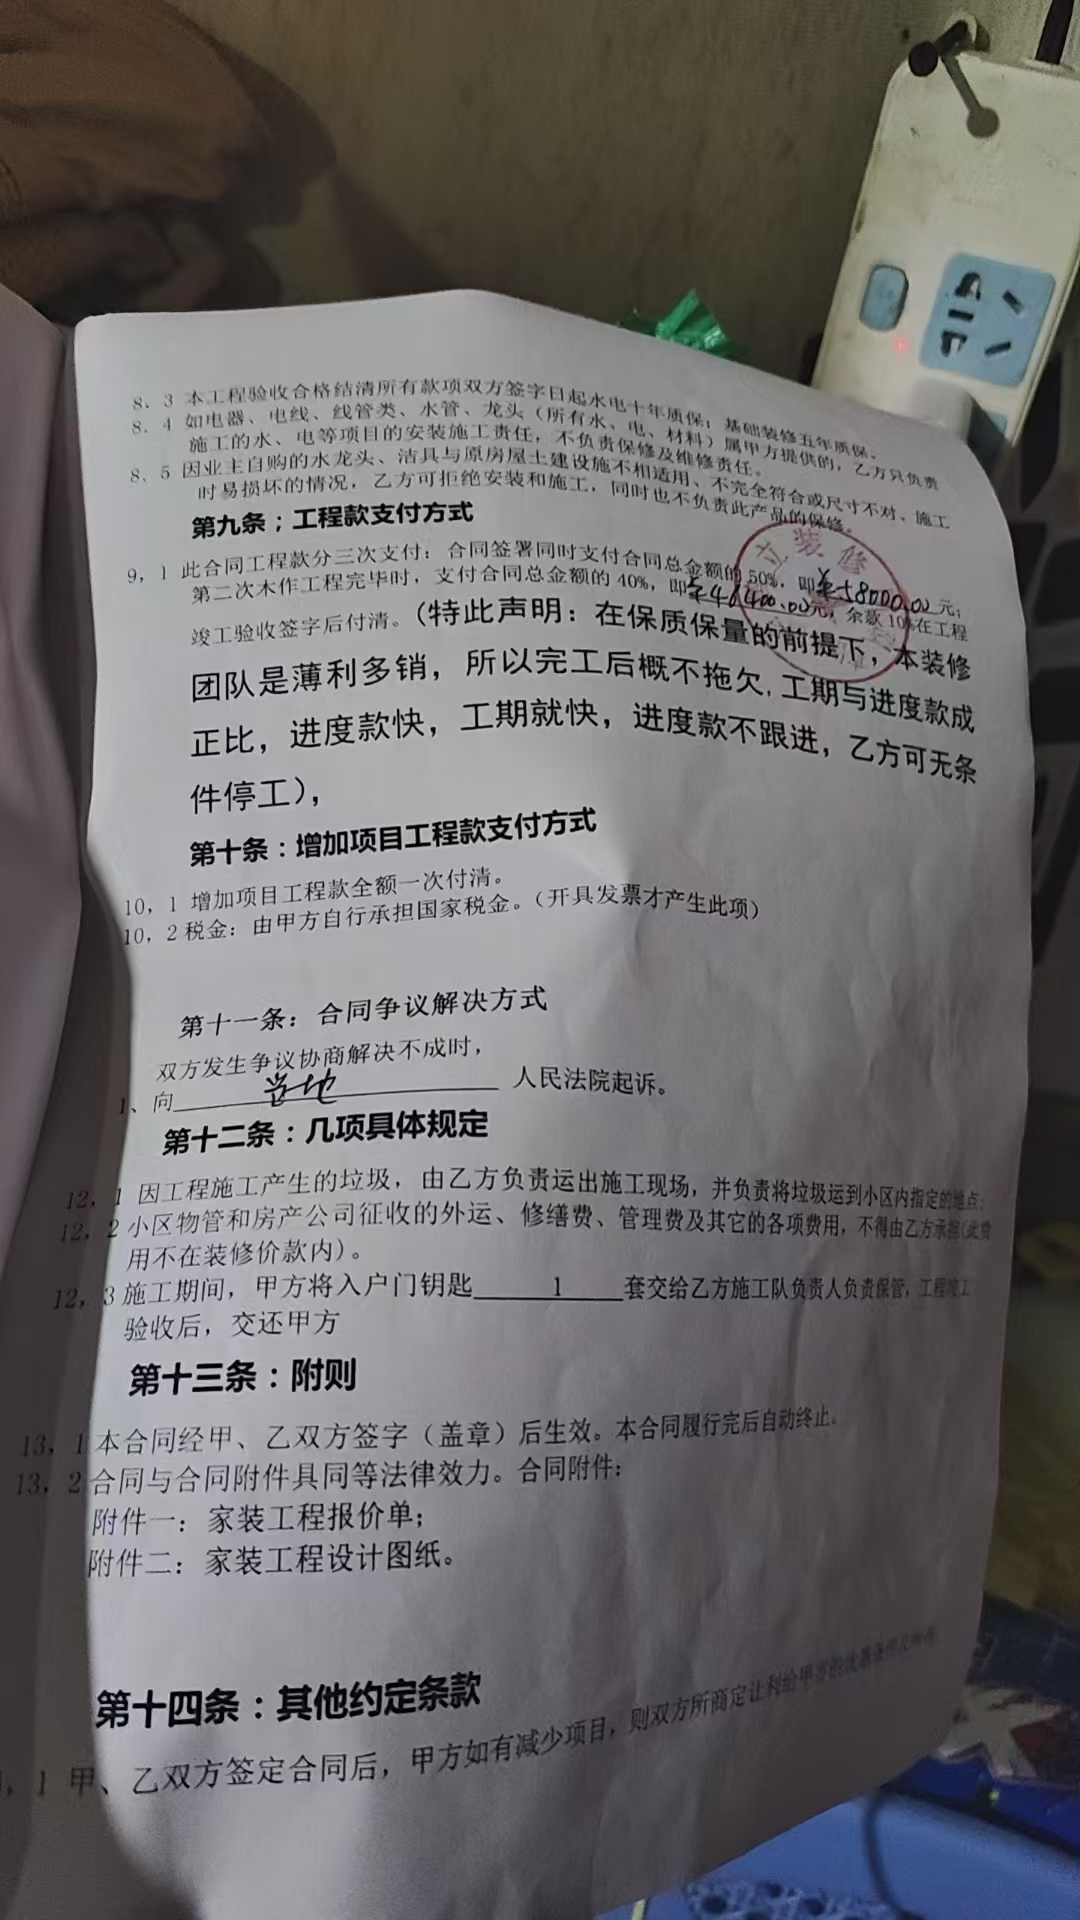 8.3 本工程验收合格结清所有款项双方签字日起水电十年质保；基础装修五年质保。
8.4 如电器、电线、线管类、水管、龙头（所有水、电、材料）属甲方提供的，乙方只负责
施工的水、电等项目的安装施工责任，不负责保修及维修责任。
8.5 因业主自购的水龙头、洁具与原房屋土建设施不相适用、不完全符合或尺寸不对、施工
时易损坏的情况，乙方可拒绝安装和施工，同时也不负责此产品的保修。
第九条；工程款支付方式
9，1 此合同工程款分三次支付：合同签署同时支付合同总金额的 50%，即¥58000.00元；
第二次木作工程完毕时，支付合同总金额的 40%，即¥46400.00元，余款10%在工程
竣工验收签字后付清。（特此声明：在保质保量的前提下，本装修
团队是薄利多销，所以完工后概不拖欠，工期与进度款成
正比，进度款快，工期就快，进度款不跟进，乙方可无条
件停工），
立装修
第十条：增加项目工程款支付方式
10，1 增加项目工程款全额一次付清。
10，2 税金：由甲方自行承担国家税金。（开具发票才产生此项）
第十一条：合同争议解决方式
双方发生争议协商解决不成时，
1、向 当地 人民法院起诉。
第十二条：几项具体规定
12，1 因工程施工产生的垃圾，由乙方负责运出施工现场，并负责将垃圾运到小区内指定的地点；
12，2 小区物管和房产公司征收的外运、修缮费、管理费及其它的各项费用，不得由乙方承担（此费
用不在装修价款内）。
12，3 施工期间，甲方将入户门钥匙 1 套交给乙方施工队负责人负责保管，工程竣工
验收后，交还甲方
第十三条：附则
13，1 本合同经甲、乙双方签字（盖章）后生效。本合同履行完后自动终止。
13，2 合同与合同附件具同等法律效力。合同附件：
附件一：家装工程报价单；
附件二：家装工程设计图纸。
第十四条：其他约定条款
，1 甲、乙双方签定合同后，甲方如有减少项目，则双方所商定让利给甲方的优惠条件及